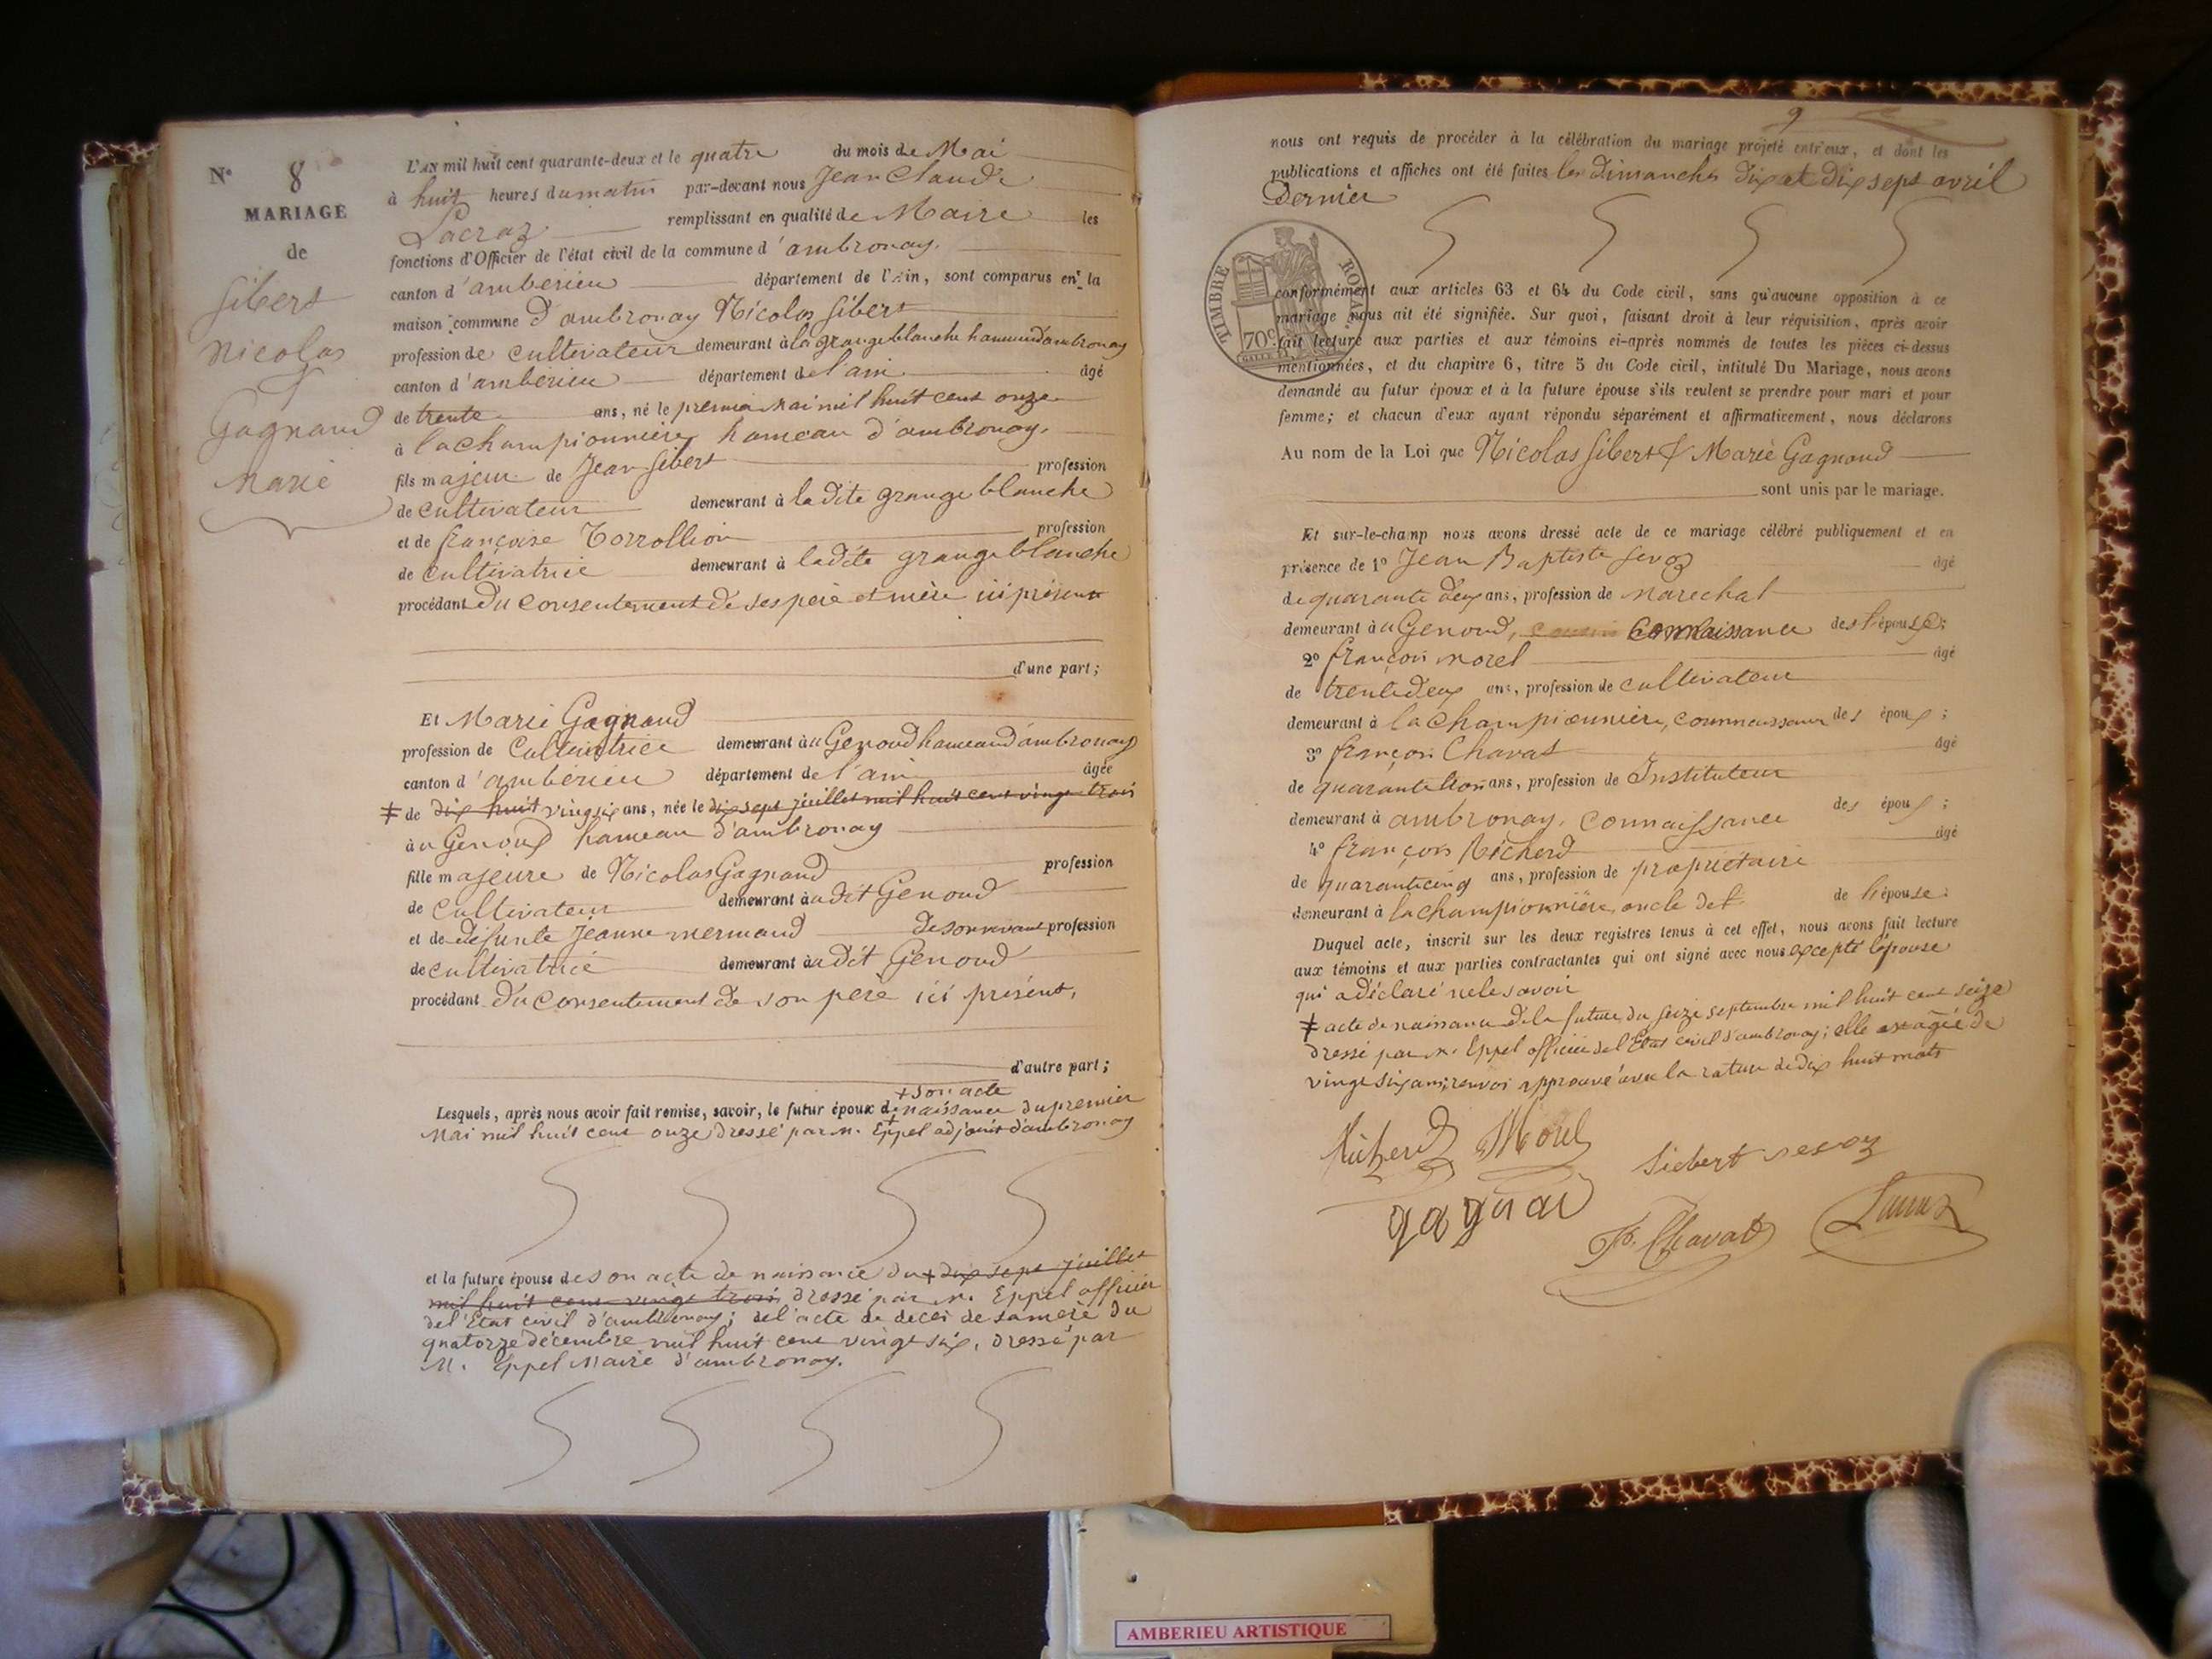 N° 8
MARIAGE
de
Sibert
Nicolas
&
Gagnaud
Marie
L'AN mil huit cent quarante-deux et le quatre du mois de Mai
à huit heures du matin par-devant nous Jean Claude
Lacraz remplissant en qualité de Maire les
fonctions d'Officier de l'état civil de la commune d'ambronay.
canton d'ambérieu département de l'Ain, sont comparus en la
maison commune d'ambronay Nicolas Sibert
profession de cultivateur demeurant à la grange blanche hameau d'ambronay
canton d'ambérieu département de l'ain âgé
de trente ans, né le premier Mai mil huit cent onze
à la championnière, hameau d'ambronay.
fils majeur de Jean Sibert profession
de cultivateur demeurant à la dite grange blanche
et de françoise Torrollion profession
de cultivatrice demeurant à ladite grange blanche
procédant du consentement de ses père et mère ici présents
d'une part;
Et Marie Gagnaud
profession de Cultivatrice demeurant à u Genoud hameau d'ambronay
canton d'ambérieu département de l'ain âgée
≠ de dix huit vingt six ans, née le dix sept juillet mil huit cent vingt trois
à u Genoud hameau d'ambronay
fille majeure de Nicolas Gagnaud profession
de cultivateur demeurant à udit Genoud
et de défunte Jeanne mermand de son vivant profession
de cultivatrice demeurant à udit Genoud
procédant du consentement de son père ici présent,
d'autre part;
+ son acte
Lesquels, après nous avoir fait remise, savoir, le futur époux de + naissance du premier
Mai mil huit cent onze dressé par m. Eppel adjoint d'ambronay
et la future épouse de son acte de naissance du ≠ dix sept juillet
mil huit cent vingt trois dressé par m. Eppel officier
de l'Etat civil d'ambronay; del'acte de décès de sa mère du
quatorze décembre mil huit cent vingt six, dressé par
M. Eppel Maire d'ambronay.
9
nous ont requis de procéder à la célébration du mariage projeté entr'eux, et dont les
publications et affiches ont été faites les dimanches dix et dix sept avril
Dernier
TIMBRE ROYAL
70c
conformément aux articles 63 et 64 du Code civil, sans qu'aucune opposition à ce
mariage nous ait été signifiée. Sur quoi, faisant droit à leur réquisition, après avoir
fait lecture aux parties et aux témoins ci-après nommés de toutes les pièces ci-dessus
mentionnées, et du chapitre 6, titre 5 du Code civil, intitulé Du Mariage, nous avons
demandé au futur époux et à la future épouse s'ils veulent se prendre pour mari et pour
femme; et chacun d'eux ayant répondu séparément et affirmativement, nous déclarons
Au nom de la Loi que Nicolas Sibert & Marie Gagnaud
sont unis par le mariage.
Et sur-le-champ nous avons dressé acte de ce mariage célébré publiquement et en
présence de 1° Jean Baptiste Sevoz âgé
de quarante deux ans, profession de marechal
demeurant à u Genoud, cousin connaissance des l'épouse;
2° françois morel âgé
de trente deux ans, profession de cultivateur
demeurant à la championnière, connaissance des époux;
3° françois Chavat âgé
de quarante trois ans, profession de Instituteur
demeurant à ambronay. connaissance des époux;
4° françois Richerd âgé
de quarante cinq ans, profession de propriétaire
demeurant à lachampionnière, oncle de l'épouse.
Duquel acte, inscrit sur les deux registres tenus à cet effet, nous avons fait lecture
aux témoins et aux parties contractantes qui ont signé avec nous excepté l'épouse
qui a déclaré ne le savoir
≠ acte de naissance de la future du seize septembre mil huit cent seize
dressé par m. Eppel officier del'Etat civil d'ambronay; elle est âgée de
vingt six ans; renvoi approuvé avec la rature de dix huit mots
Richerd Morel Siebert sevoz
gagnau F. Chavat Lacraz
AMBERIEU ARTISTIQUE